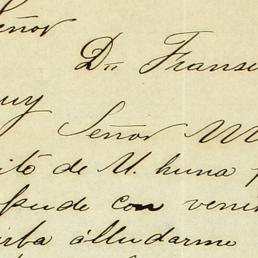 Señor
Dn Fransi
uy
Señor M
itó de U. huna
pude con veni
irba álludarme